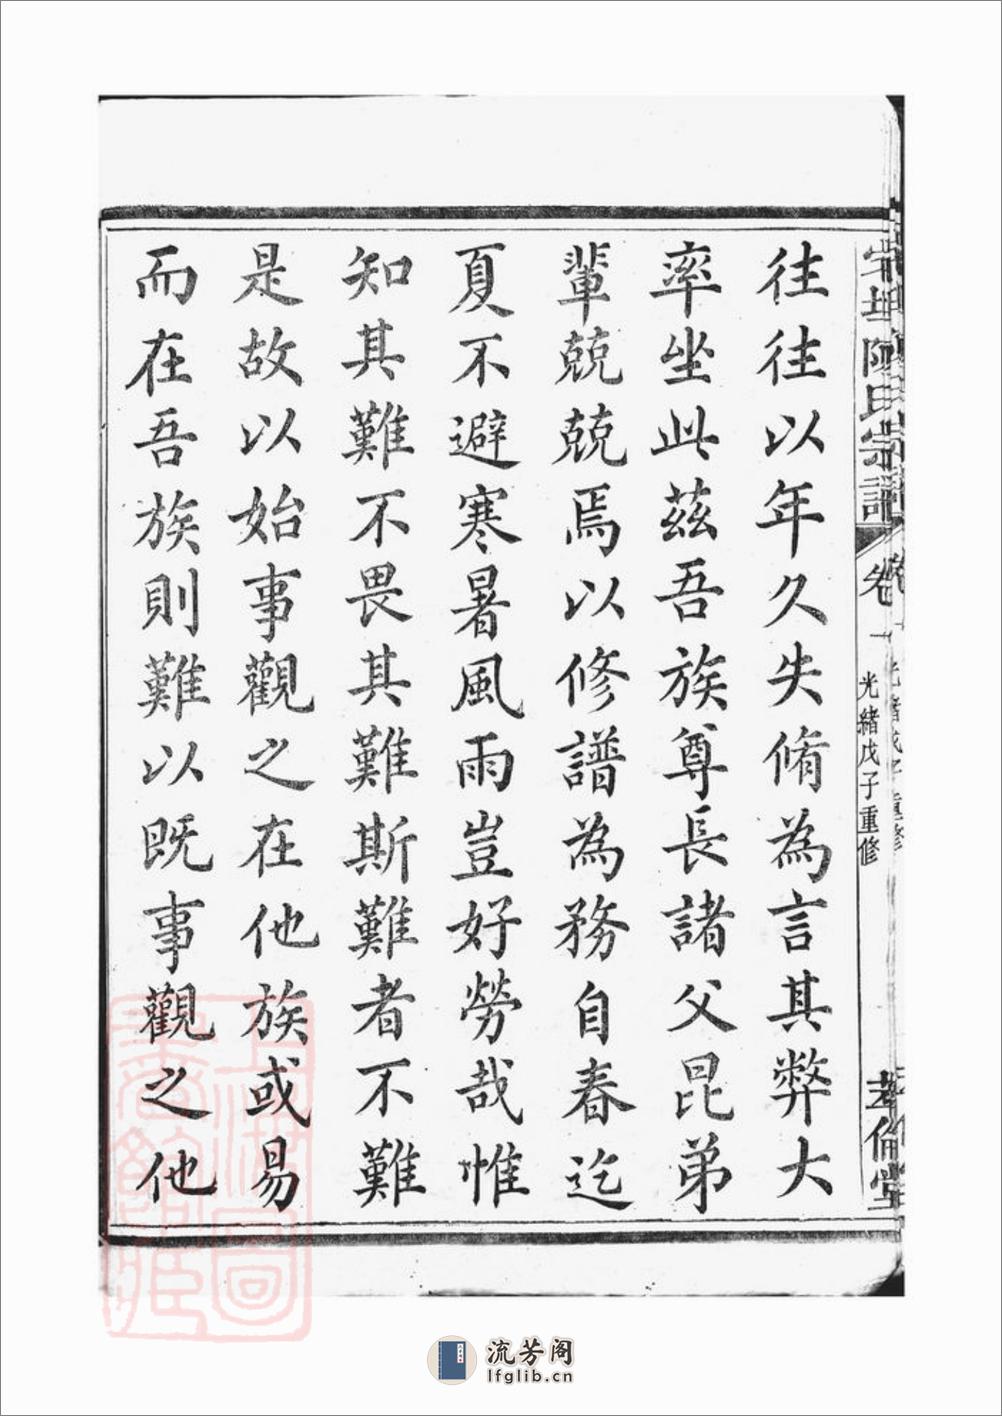 陳氏宗譜
卷一
光緒戊子重修
倫堂
往往以年久失脩為言其弊大
率坐此茲吾族尊長諸父昆弟
輩兢兢焉以修譜為務自春迄
夏不避寒暑風雨豈好勞哉惟
知其難不畏其難斯難者不難
是故以始事觀之在他族或易
而在吾族則難以既事觀之他
上海圖書館藏
流芳阁
lfglib.cn